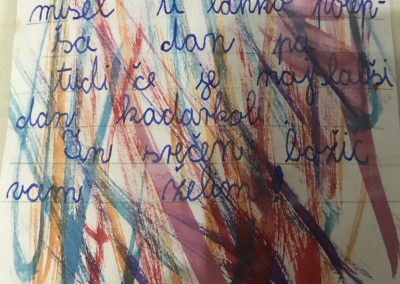 misel ti lahko polep-
ša dan pa
tudi če je najslabši
dan kadarkoli.
In srečen božič
vam želim!